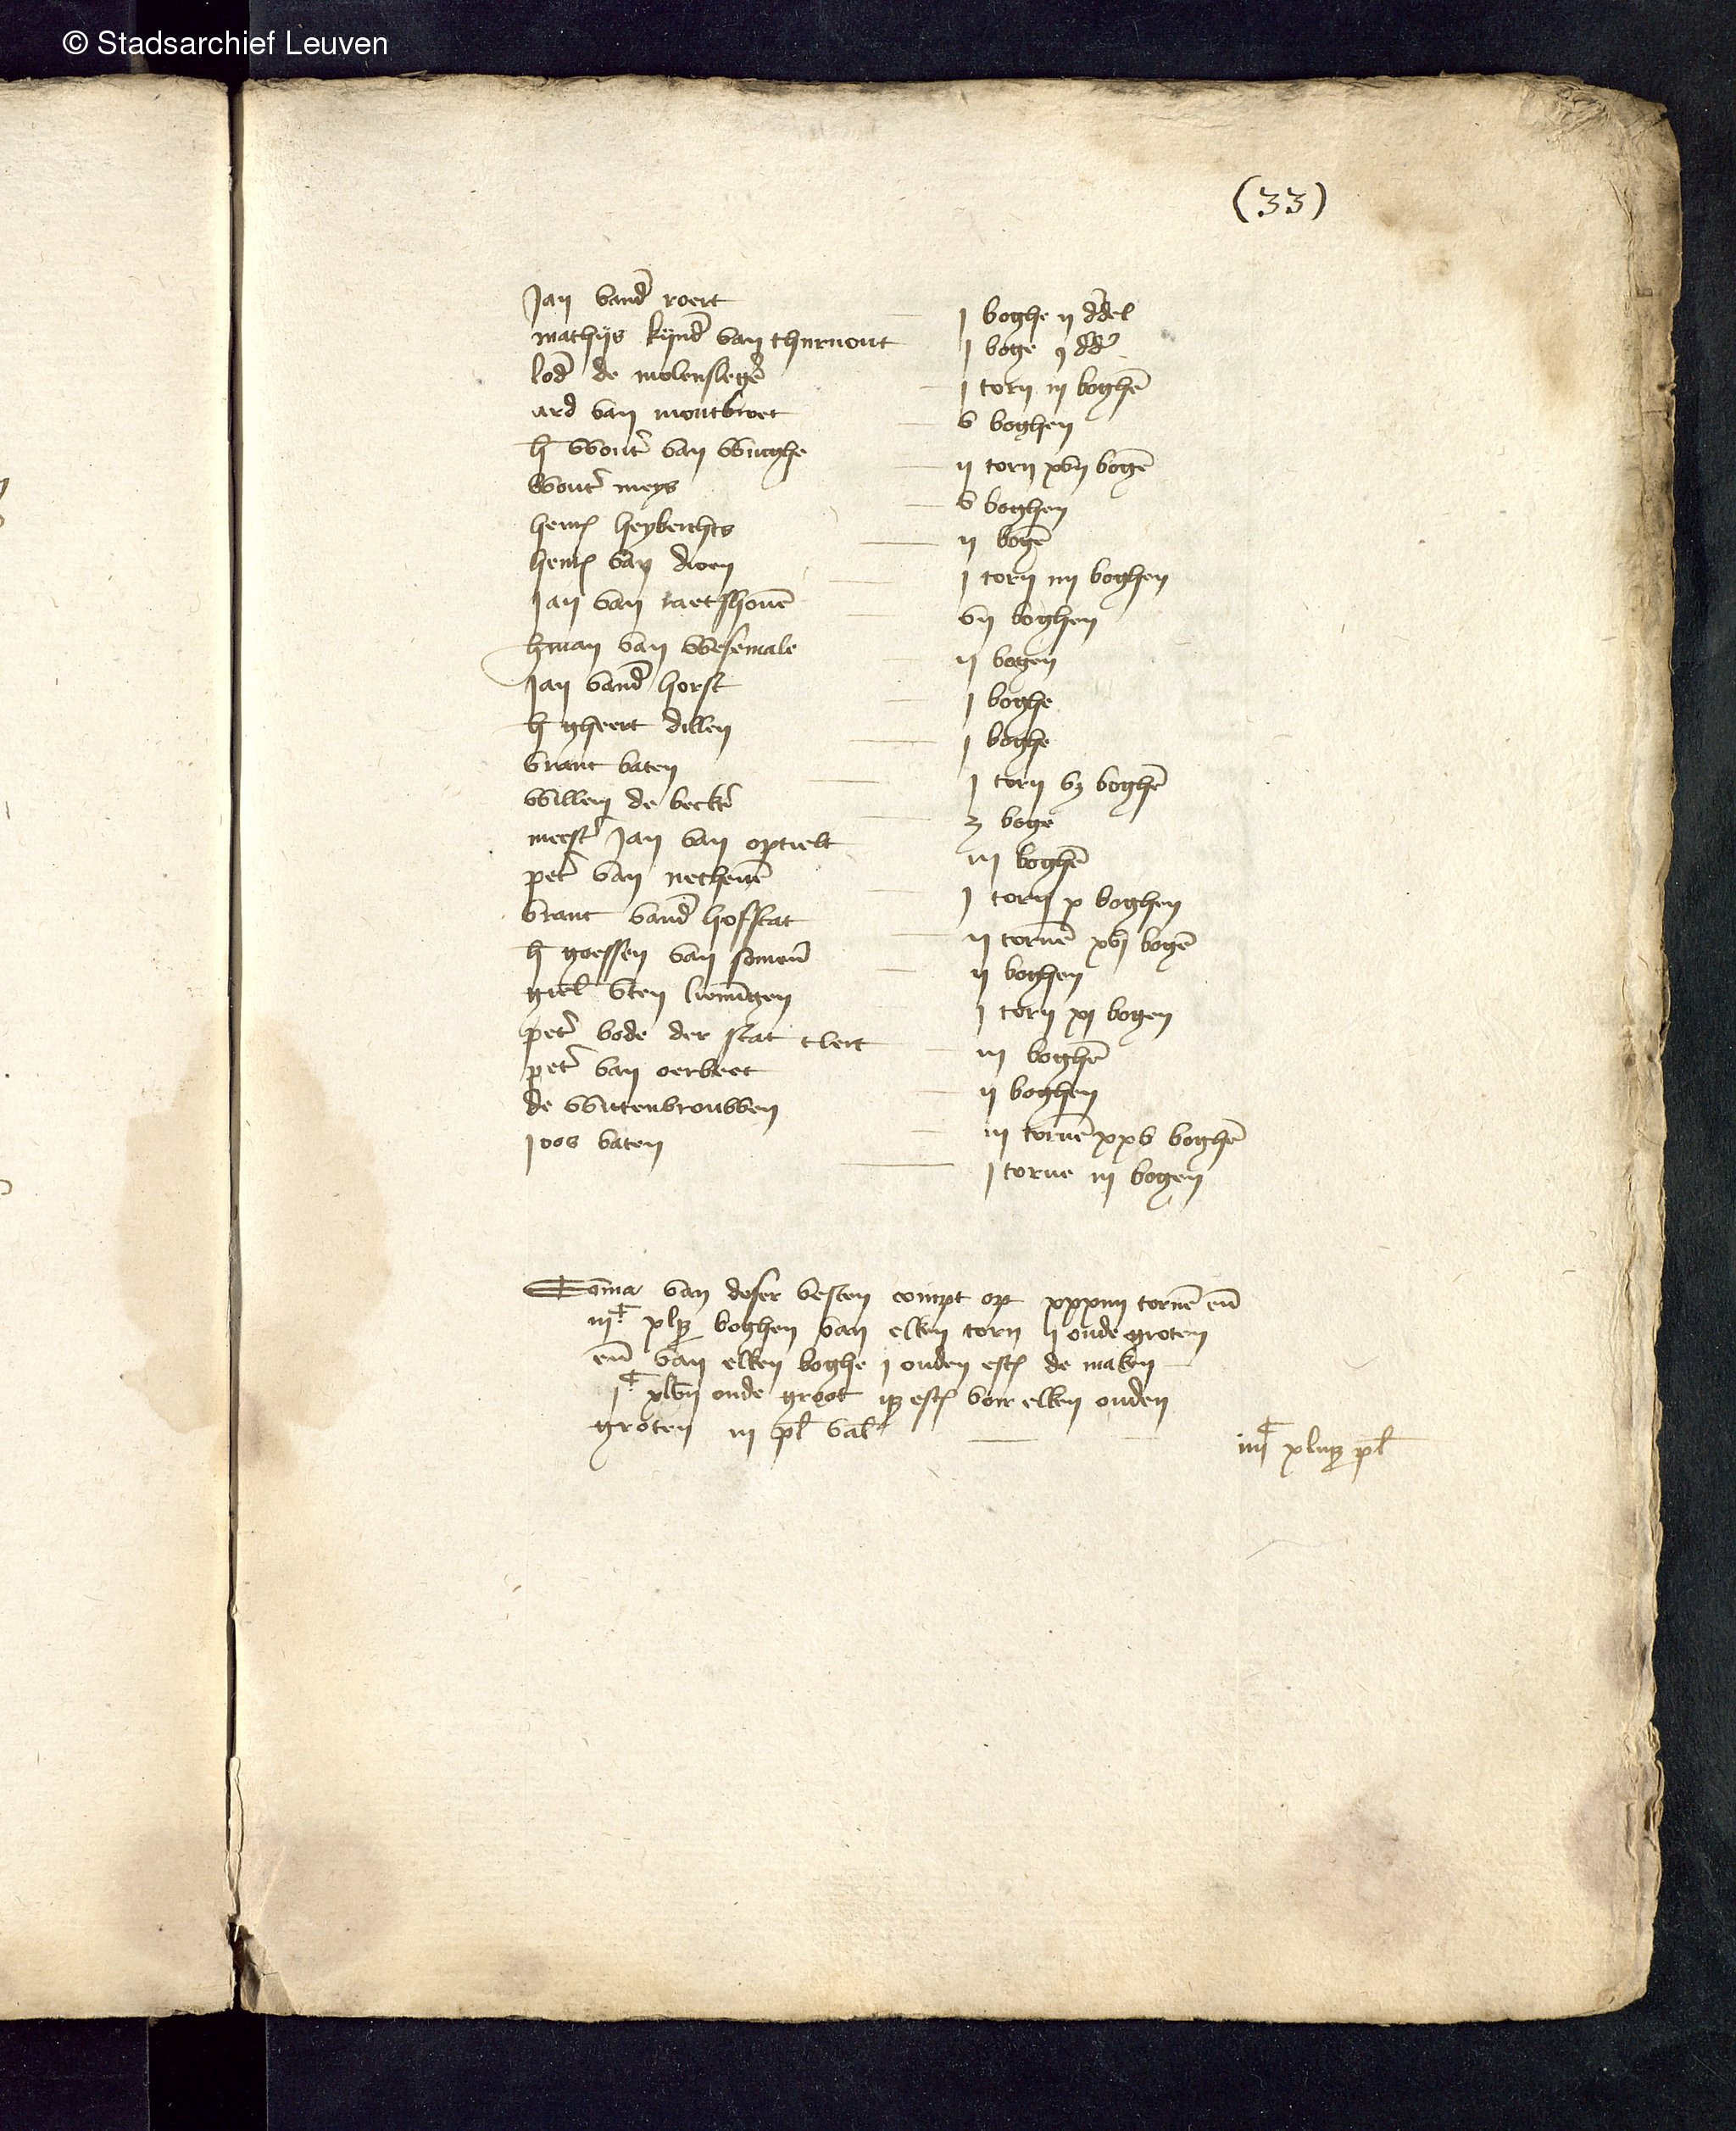 © Stadsarchief Leuven
(33)
Jan vand' roert j boghe ij ddel
mathijs kijnd' van thurnout j boge j dd'
lod' de molenslegē j torn iij boghē
ard van montvoet v boghen
h wout' van Winghe ij torn xvij bogē
Wout' meys v boghen
henr heyberthts ij bogē
henr van dioen j torn iiij boghen
Jan van raetshovē vij boghen
hman van Wesemale ij bogen
Jan vand' horst j boghe
h gheert dillen j boghe
vranc baten j torn boghē
Willem de beckē boge
meest' Jan van optvelt iij boghē
pet' van nethenē j torn x boghen
vranc vand' hofstat ij tornē xvj bogē
h goessen van someren ij boghen
giel vten liemingen j torn xj bogen
pet' bode der stat clerc iij boghē
pet' van oerbeec ij boghen
de Wittenvrouwen iij tornē xxv boghē
joos baten j torne iij bogen
Sōma van deser vesten compt op xxxiiij tornē eñ
iijc boghen van elken torn ij oude groten
eñ van elken boghe j ouden est de maken
jc xlvij oude groot est voir elken ouden
groten iij pl val
iiijc pl